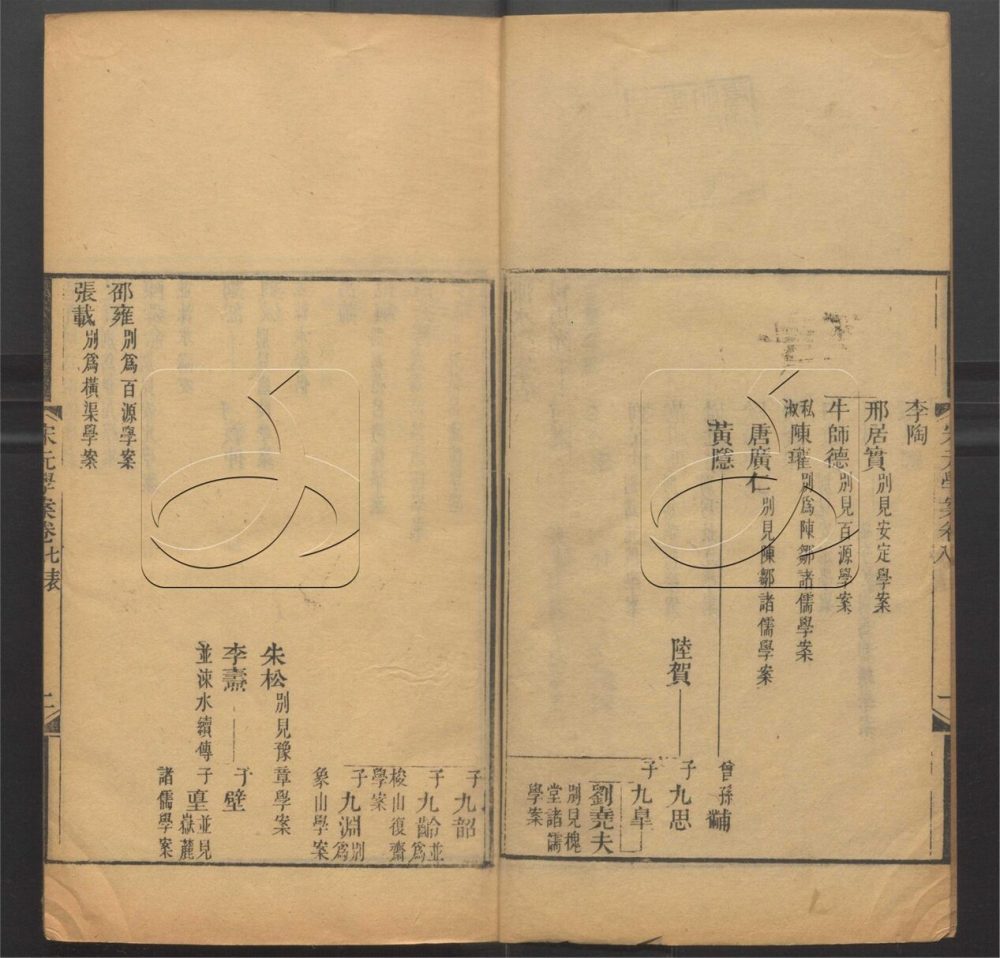 李陶
邢居實別見安定學案
牛師德別見百源學案
私淑陳瓘別爲陳鄒諸儒學案
唐廣仁別見陳鄒諸儒學案
黃隱
曾孫黼
陸賀
子九思
子九皐
劉堯夫
別見槐堂諸儒學案
子九韶
子九齡並爲
梭山復齋學案
子九淵別爲
象山學案
朱松別見豫章學案
李燾
子壁
並涑水續傳
子𡌴並見嶽麓
諸儒學案
邵雍別爲百源學案
張載別爲橫渠學案
宋元學案卷七表
二